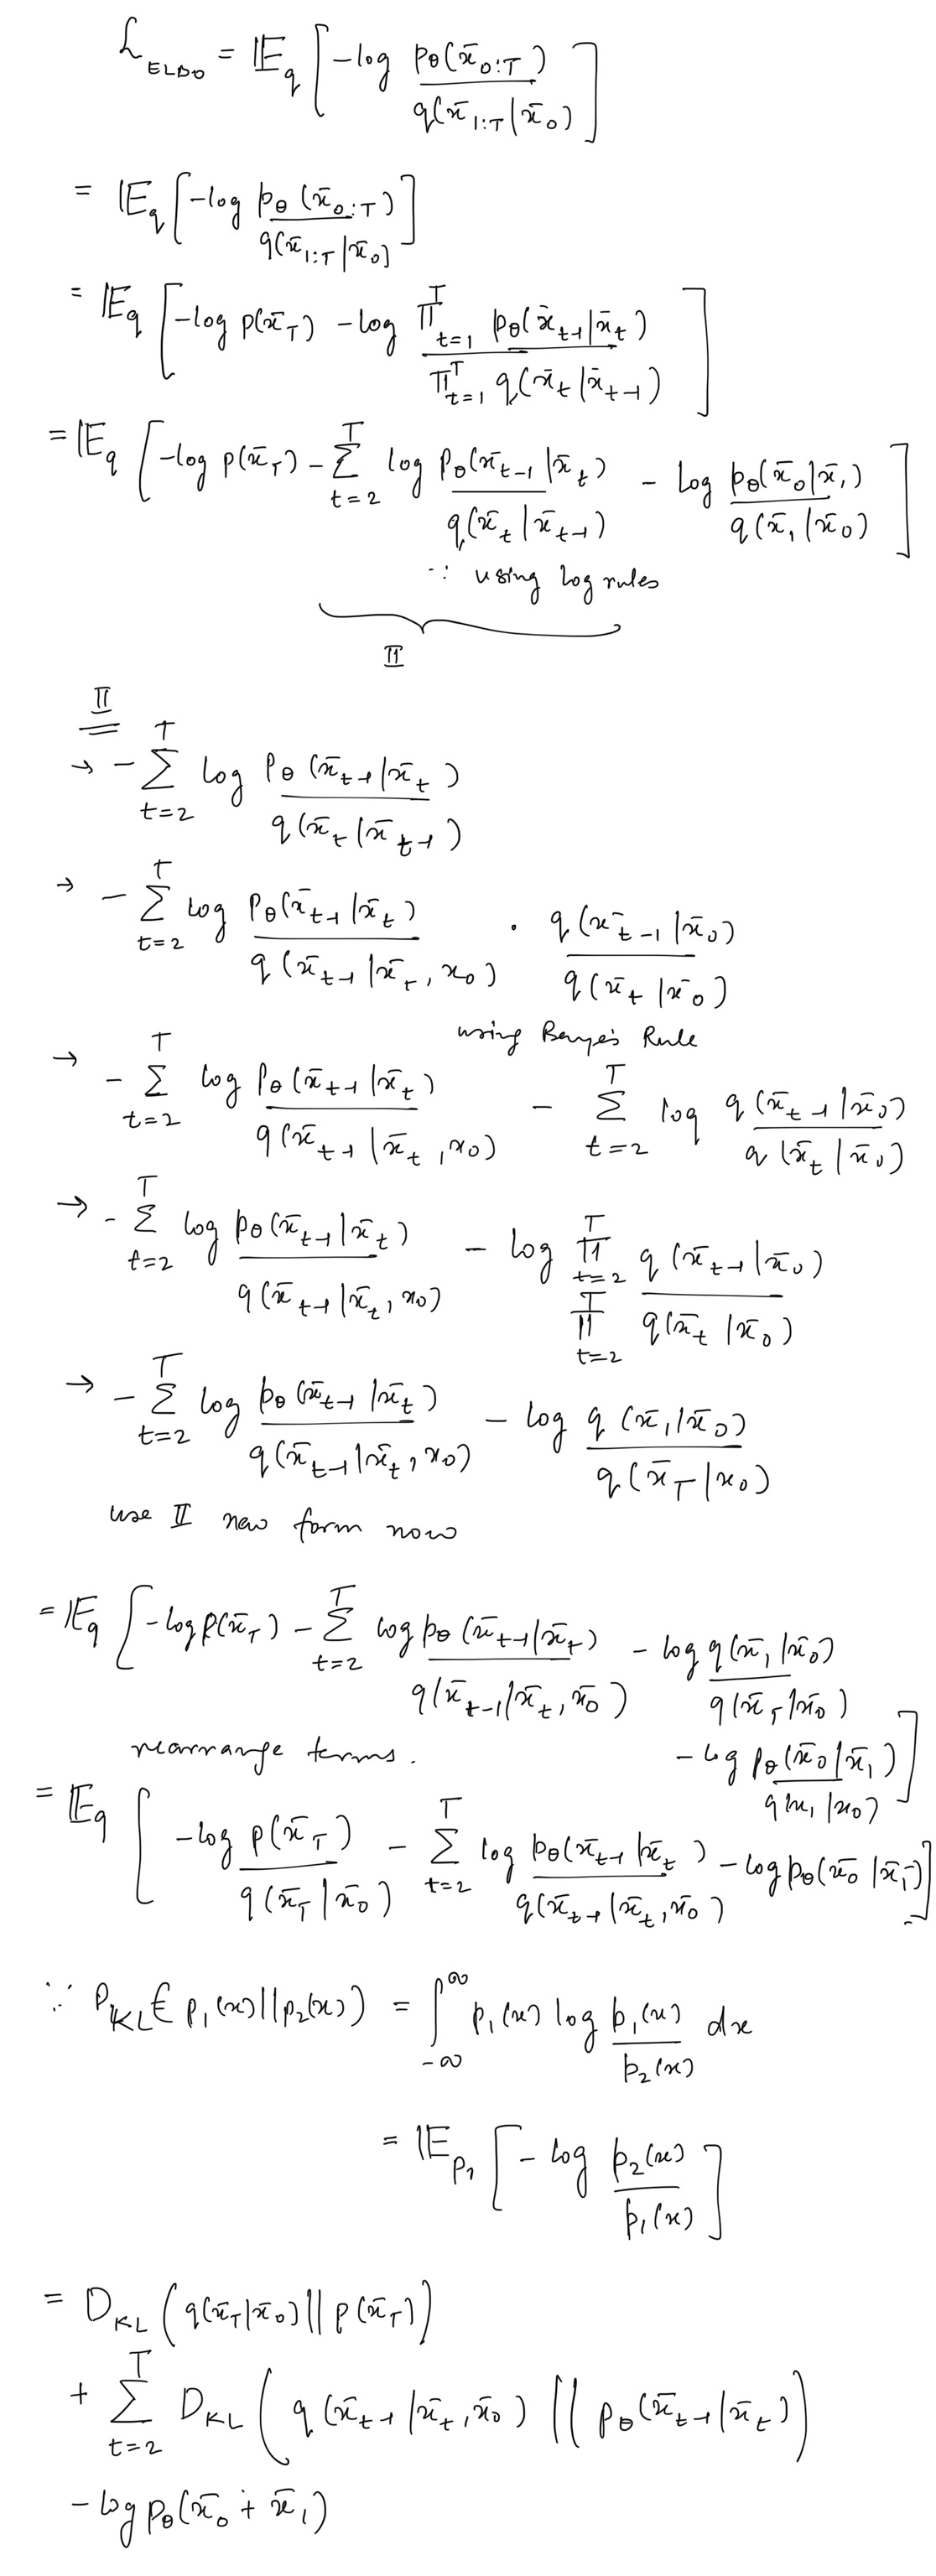 L_ELBO = E_q [ -log p_θ(x̄_{0:T}) / q(x̄_{1:T}|x̄_0) ]
= E_q [ -log p_θ(x̄_{0:T}) / q(x̄_{1:T}|x̄_0) ]
= E_q [ -log p(x̄_T) - log Π_{t=1}^T p_θ(x̄_{t-1}|x̄_t) / Π_{t=1}^T q(x̄_t|x̄_{t-1}) ]
= E_q [ -log p(x̄_T) - Σ_{t=2}^T log p_θ(x̄_{t-1}|x̄_t) / q(x̄_t|x̄_{t-1}) - log p_θ(x̄_0|x̄_1) / q(x̄_1|x̄_0) ]
∵ using log rules
II
II
→ - Σ_{t=2}^T log p_θ(x̄_{t-1}|x̄_t) / q(x̄_t|x̄_{t-1})
→ - Σ_{t=2}^T log p_θ(x̄_{t-1}|x̄_t) / q(x̄_{t-1}|x̄_t, x_0) · q(x̄_{t-1}|x̄_0) / q(x̄_t|x̄_0)
using Baye's Rule
→ - Σ_{t=2}^T log p_θ(x̄_{t-1}|x̄_t) / q(x̄_{t-1}|x̄_t, x_0) - Σ_{t=2}^T log q(x̄_{t-1}|x̄_0) / q(x̄_t|x̄_0)
→ - Σ_{t=2}^T log p_θ(x̄_{t-1}|x̄_t) / q(x̄_{t-1}|x̄_t, x_0) - log Π_{t=2}^T q(x̄_{t-1}|x̄_0) / Π_{t=2}^T q(x̄_t|x̄_0)
→ - Σ_{t=2}^T log p_θ(x̄_{t-1}|x̄_t) / q(x̄_{t-1}|x̄_t, x_0) - log q(x̄_1|x̄_0) / q(x̄_T|x_0)
use II new form now
= E_q [ -log p(x̄_T) - Σ_{t=2}^T log p_θ(x̄_{t-1}|x̄_t) / q(x̄_{t-1}|x̄_t, x̄_0) - log q(x̄_1|x̄_0) / q(x̄_T|x̄_0)
- log p_θ(x̄_0|x̄_1) / q(x_1|x_0) ]
rearrange terms.
= E_q [ -log p(x̄_T) / q(x̄_T|x̄_0) - Σ_{t=2}^T log p_θ(x̄_{t-1}|x̄_t) / q(x̄_{t-1}|x̄_t, x̄_0) - log p_θ(x̄_0|x̄_1) ]
∵ D_KL( p_1(x)||p_2(x)) = ∫_{-∞}^{∞} p_1(x) log p_1(x) / p_2(x) dx
= E_{p_1} [ -log p_2(x) / p_1(x) ]
= D_KL( q(x̄_T|x̄_0) || p(x̄_T))
+ Σ_{t=2}^T D_KL( q(x̄_{t-1}|x̄_t, x̄_0) || p_θ(x̄_{t-1}|x̄_t) )
- log p_θ(x̄_0 + x̄_1)